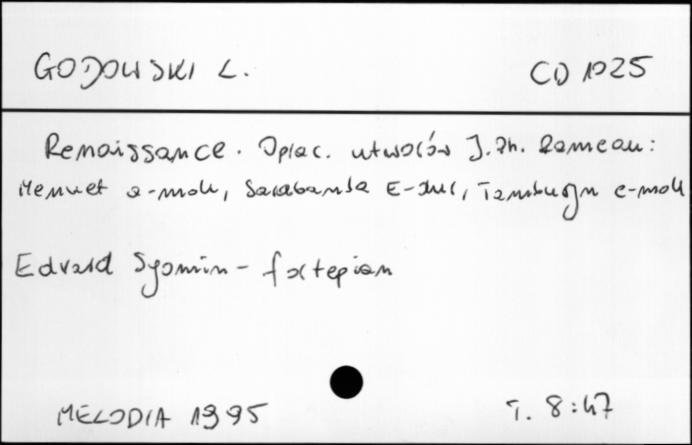 GODOWSKI L. CD 1025
Renaissance. Oprac. utworów J.Ph. Rameau:
Menuet a-moll, Sarabanda E-dur, Tamburyn e-moll
Edvard Syomin - fortepian
MELODIA 1995 T. 8:47